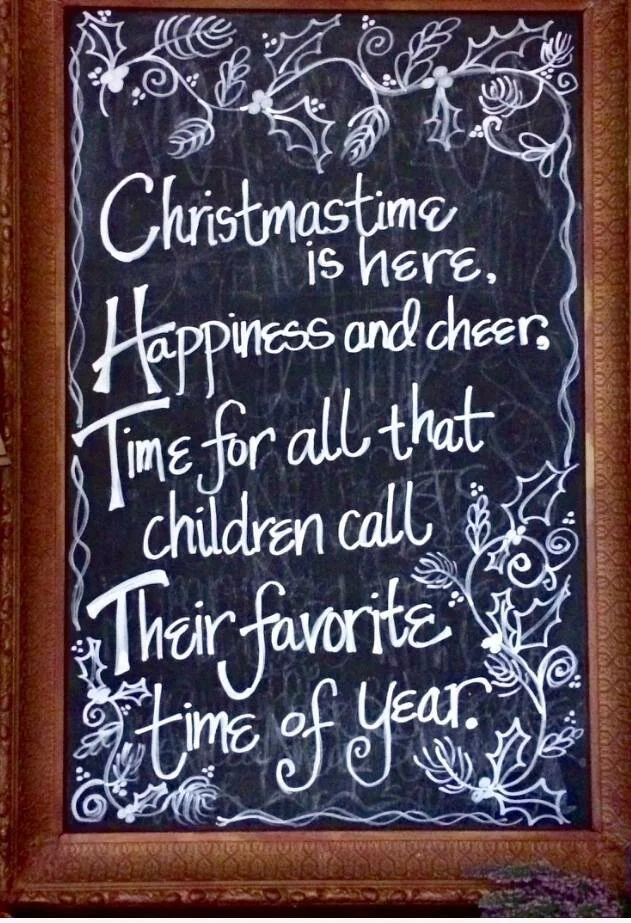 Christmastime
is here,
Happiness and cheer,
Time for all that
children call
Their favorite
time of year.